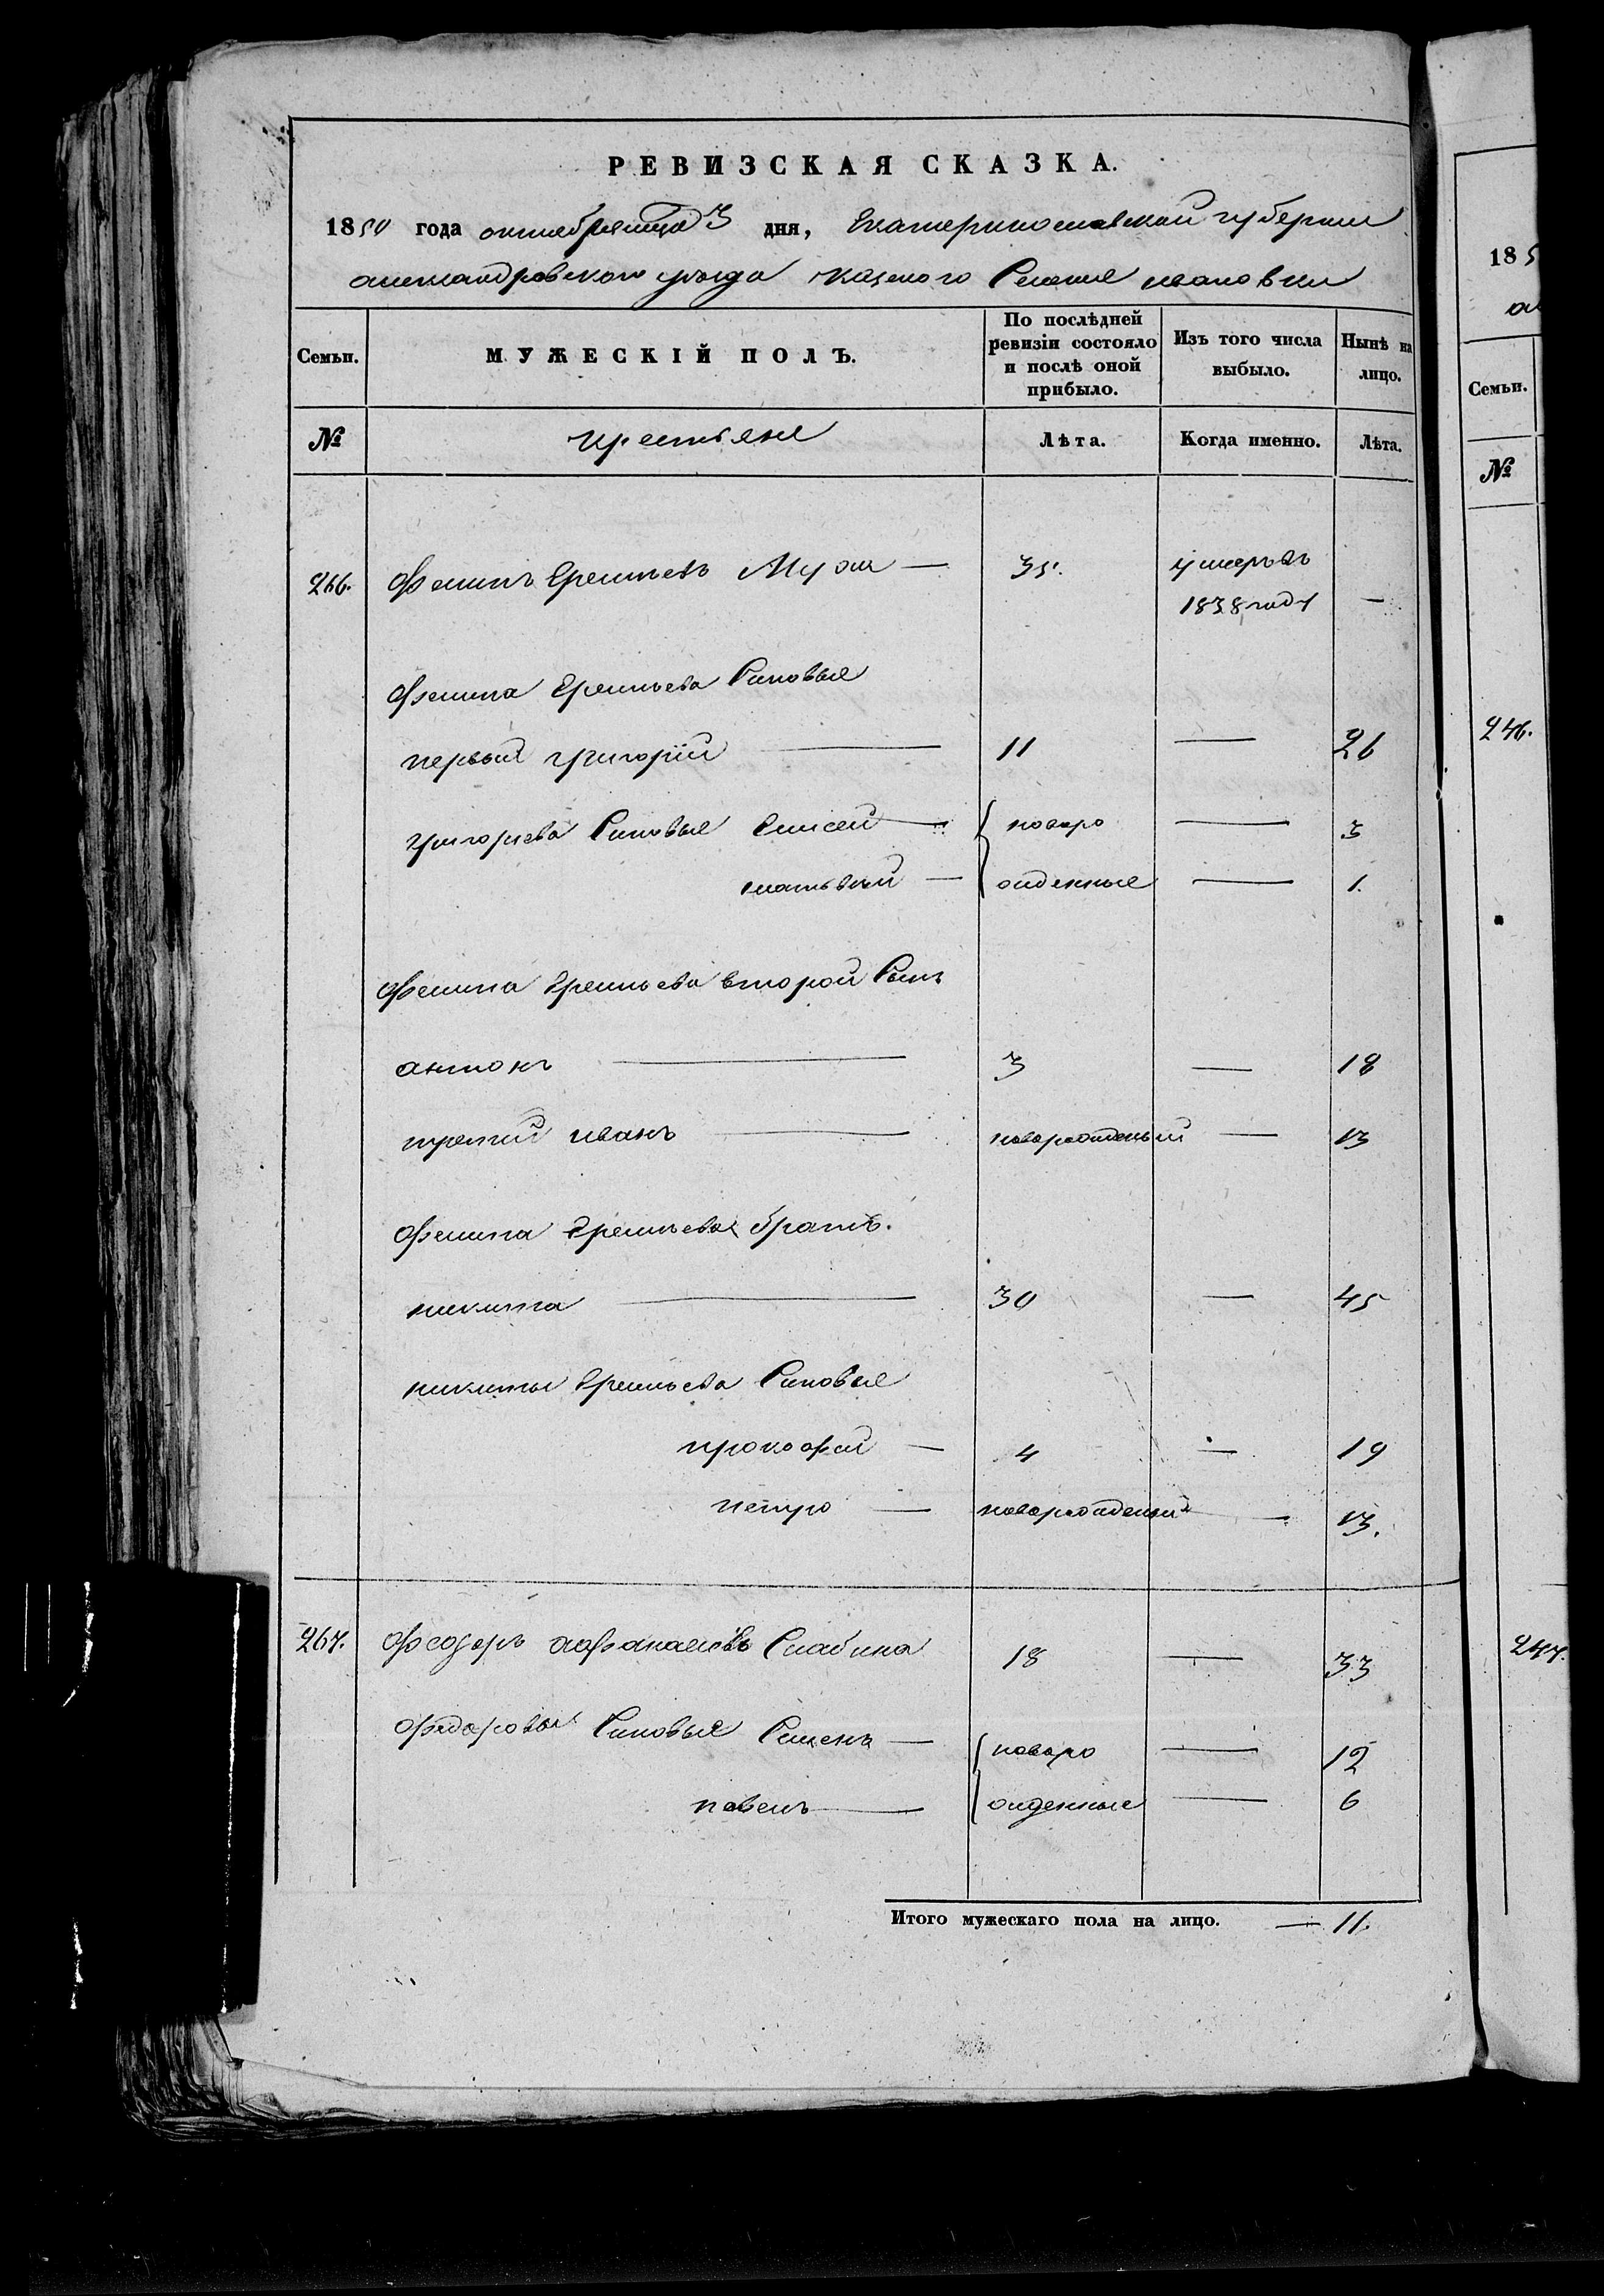 РЕВИЗСКАЯ СКАЗКА.
1850 года октября месяца 3 дня, Екатеринославской губернии
александровского уезда казеного Селения ивановки
Семьи. МУЖЕСКІЙ ПОЛЪ. По послѣдней ревизіи состояло и послѣ оной прибыло. Изъ того числа выбыло. Нынѣ на лицо.
№ крестьяне Лѣта. Когда именно. Лѣта.
266. Филипъ Еремьевъ 35. умеръ въ
1838 году —
Филипа Еремьева Синовья
первый григорій — 11 — 26
григорьева Синовья Елисей — новоро — 3
матьвѣй — жденные — 1.
Филипа Еремьева второй Сынъ
антонъ — 3 — 18
третий иванъ — новорожденый — 13
Филипа Еремьева братъ.
никита — 30 — 45
никиты Еремьева Синовья
прокофий — 4 — 19
петро — новорожденый — 13.
267. Федоръ Афанасьевъ 18 — 33
Федоровы Синовья Семенъ — новоро — 12
павелъ — жденные — 6
Итого мужескаго пола на лицо. — 11.
185
Семьи.
№
246.
247.